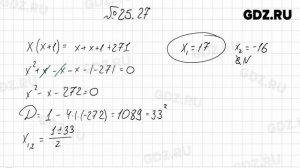 № 25.27
GDZ.RU
x(x+1) = x+x+1+271
x²+x-x-x-1-271=0
x²-x-272=0
D = 1 - 4·1·(-272) = 1089 = 33²
x₁,₂ = (1±33)/2
x₁ = 17
x₂ = -16
∉ N
GDZ.RU
GDZ.RU